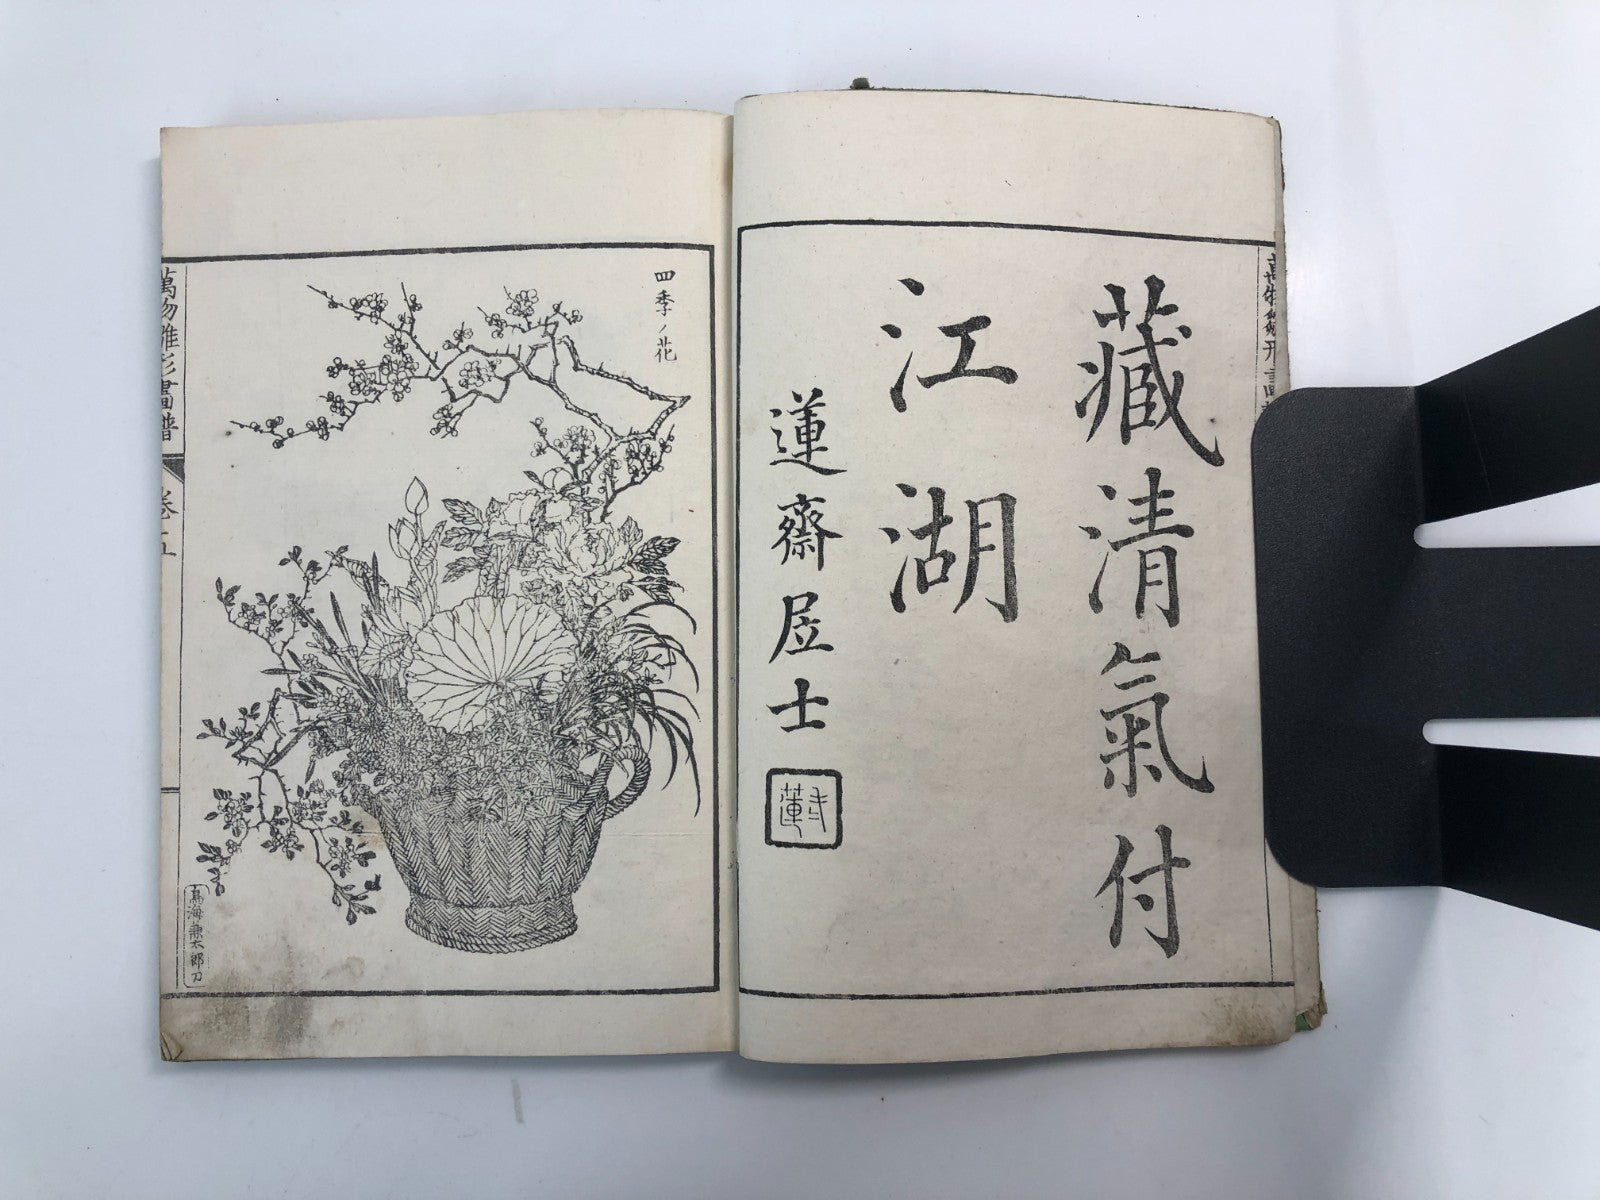 藏清氣付
江湖
蓮齋居士
四季ノ花
萬物雛形畫譜
卷五
鳥海兼太郎刀